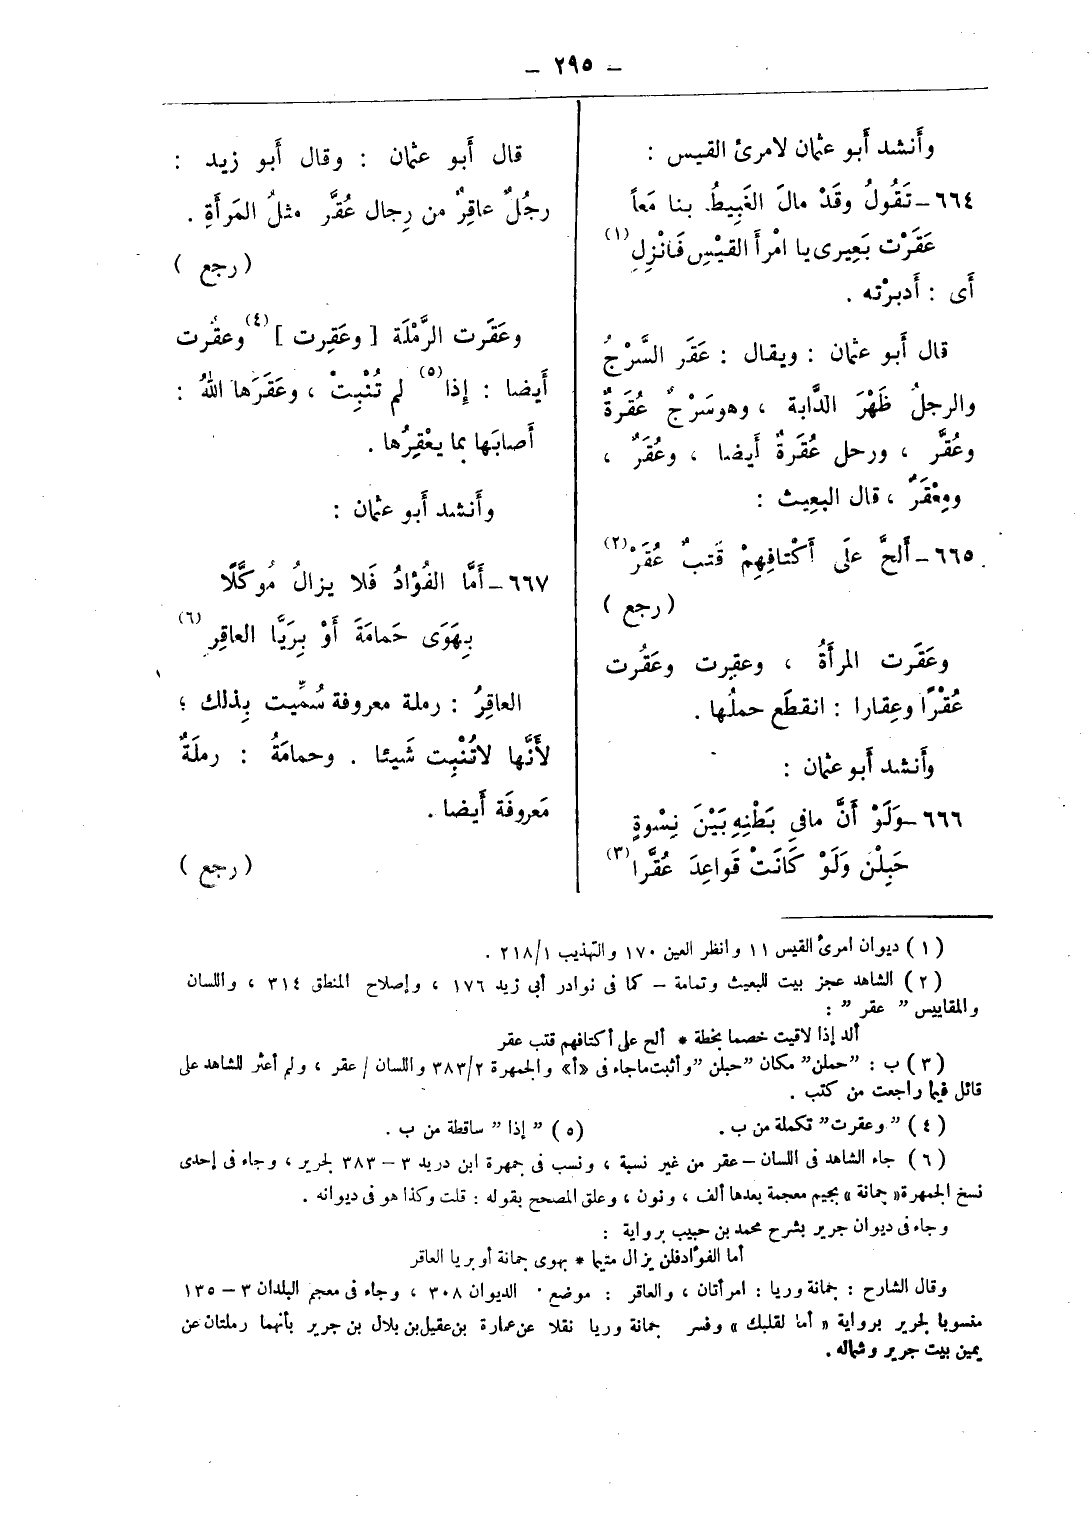 – ٢٩٥ –
وأَنشد أَبو عثمان لامرئ القيس :
٦٦٤ – تَقُولُ وقَدْ مالَ الغَبِيطُ بنا مَعاً
عَقَرْت بَعِيرى يا امْرأَ القيْسِ فَانْزِلِ (١)
أَى : أَدبرْته .
قال أَبو عثمان : ويقال : عَقَر السَّرْجُ
والرجلُ ظَهْرَ الدَّابة ، وهو سَرْجٌ عُقَرَةٌ
وعُقَّر ، ورحل عُقَرَةٌ أَيضا ، وعُقَرٌ ،
ومِعْقَرٌ ، قال البعِيث :
٦٦٥ – أَلحَّ علَى أَكْتافِهِمْ قَتبٌ عُقَرْ (٢)
( رجع )
وعَقَرت المرأَةُ ، وعقِرت وعَقُرت
عُقْرًا وعِقارا : انقطَع حملُها .
وأَنشد أَبو عثمان :
٦٦٦ – وَلَوْ أَنَّ مافي بَطْنِهِ بَيْنَ نِسْوةٍ
حَبِلْن وَلَوْ كَانَتْ قَواعِدَ عُقَّرا (٣)
قال أَبو عثمان : وقال أَبو زيد :
رجُلٌ عاقِرٌ من رِجال عُقَّر مثلُ المَرأَةِ .
( رجع )
وعَقَرت الرَّمْلَة [ وعَقِرت ] (٤) وعقُرت
أَيضا : إِذا (٥) لم تُنْبِتْ ، وعَقَرَها اللهُ :
أَصابَها بما يعْقِرُها .
وأَنشد أَبو عثمان :
٦٦٧ – أَمَّا الفُؤادُ فَلا يزالُ مُوكَّلًا
بِهَوَى حَمامَةَ أَوْ بِرَيَّا العاقِرِ (٦)
العاقِرُ : رملة معروفة سُمِّيت بِذلك ؛
لأَنَّها لاتُنْبِت شَيئا . وحمامَةُ : رملَةٌ
مَعروفَة أَيضا .
( رجع )
( ١ ) ديوان امرئ القيس ١١ وانظر العين ١٧٠ والتهذيب ٢١٨/١ .
( ٢ ) الشاهد عجز بيت للبعيث وتمامة – كما فى نوادر أبى زيد ١٧٦ ، وإصلاح المنطق ٣١٤ ، واللسان
والمقاييس ” عقر “ :
ألد إذا لاقيت خصما بخطة * ألح على أكتافهم قتب عقر
( ٣ ) ب : ”حملن“ مكان ”حبلن“ وأثبت ماجاء فى «أ» والجمهرة ٣٨٣/٢ واللسان / عقر ، ولم أعثر للشاهد على
قائل فيما راجعت من كتب .
( ٤ ) ” وعقرت“ تكملة من ب . (٥ ) ” إذا “ ساقطة من ب .
( ٦ ) جاء الشاهد فى اللسان – عقر من غير نسبة ، ونسب فى جمهرة ابن دريد ٣ – ٣٨٣ لجرير ، وجاء فى إحدى
نسخ الجمهرة « جمانة » بجيم معجمة بعدها ألف ، ونون ، وعلق المصحح بقوله : قلت وكذا هو فى ديوانه .
وجاء فى ديوان جرير بشرح محمد بن حبيب برواية :
أما الفؤاد فلن يزال متيما * بهوى جمانة أو بريا العاقر
وقال الشارح : جمانة وريا : امرأتان ، والعاقر : موضع . الديوان ٣٠٨ ، وجاء فى معجم البلدان ٣ – ١٣٥
منسوبا لجرير برواية « أما لقلبك » وفسر جمانة وريا نقلا عن عمارة بن عقيل بن بلال بن جرير بأنهما رملتان عن
يمين بيت جرير وشماله .